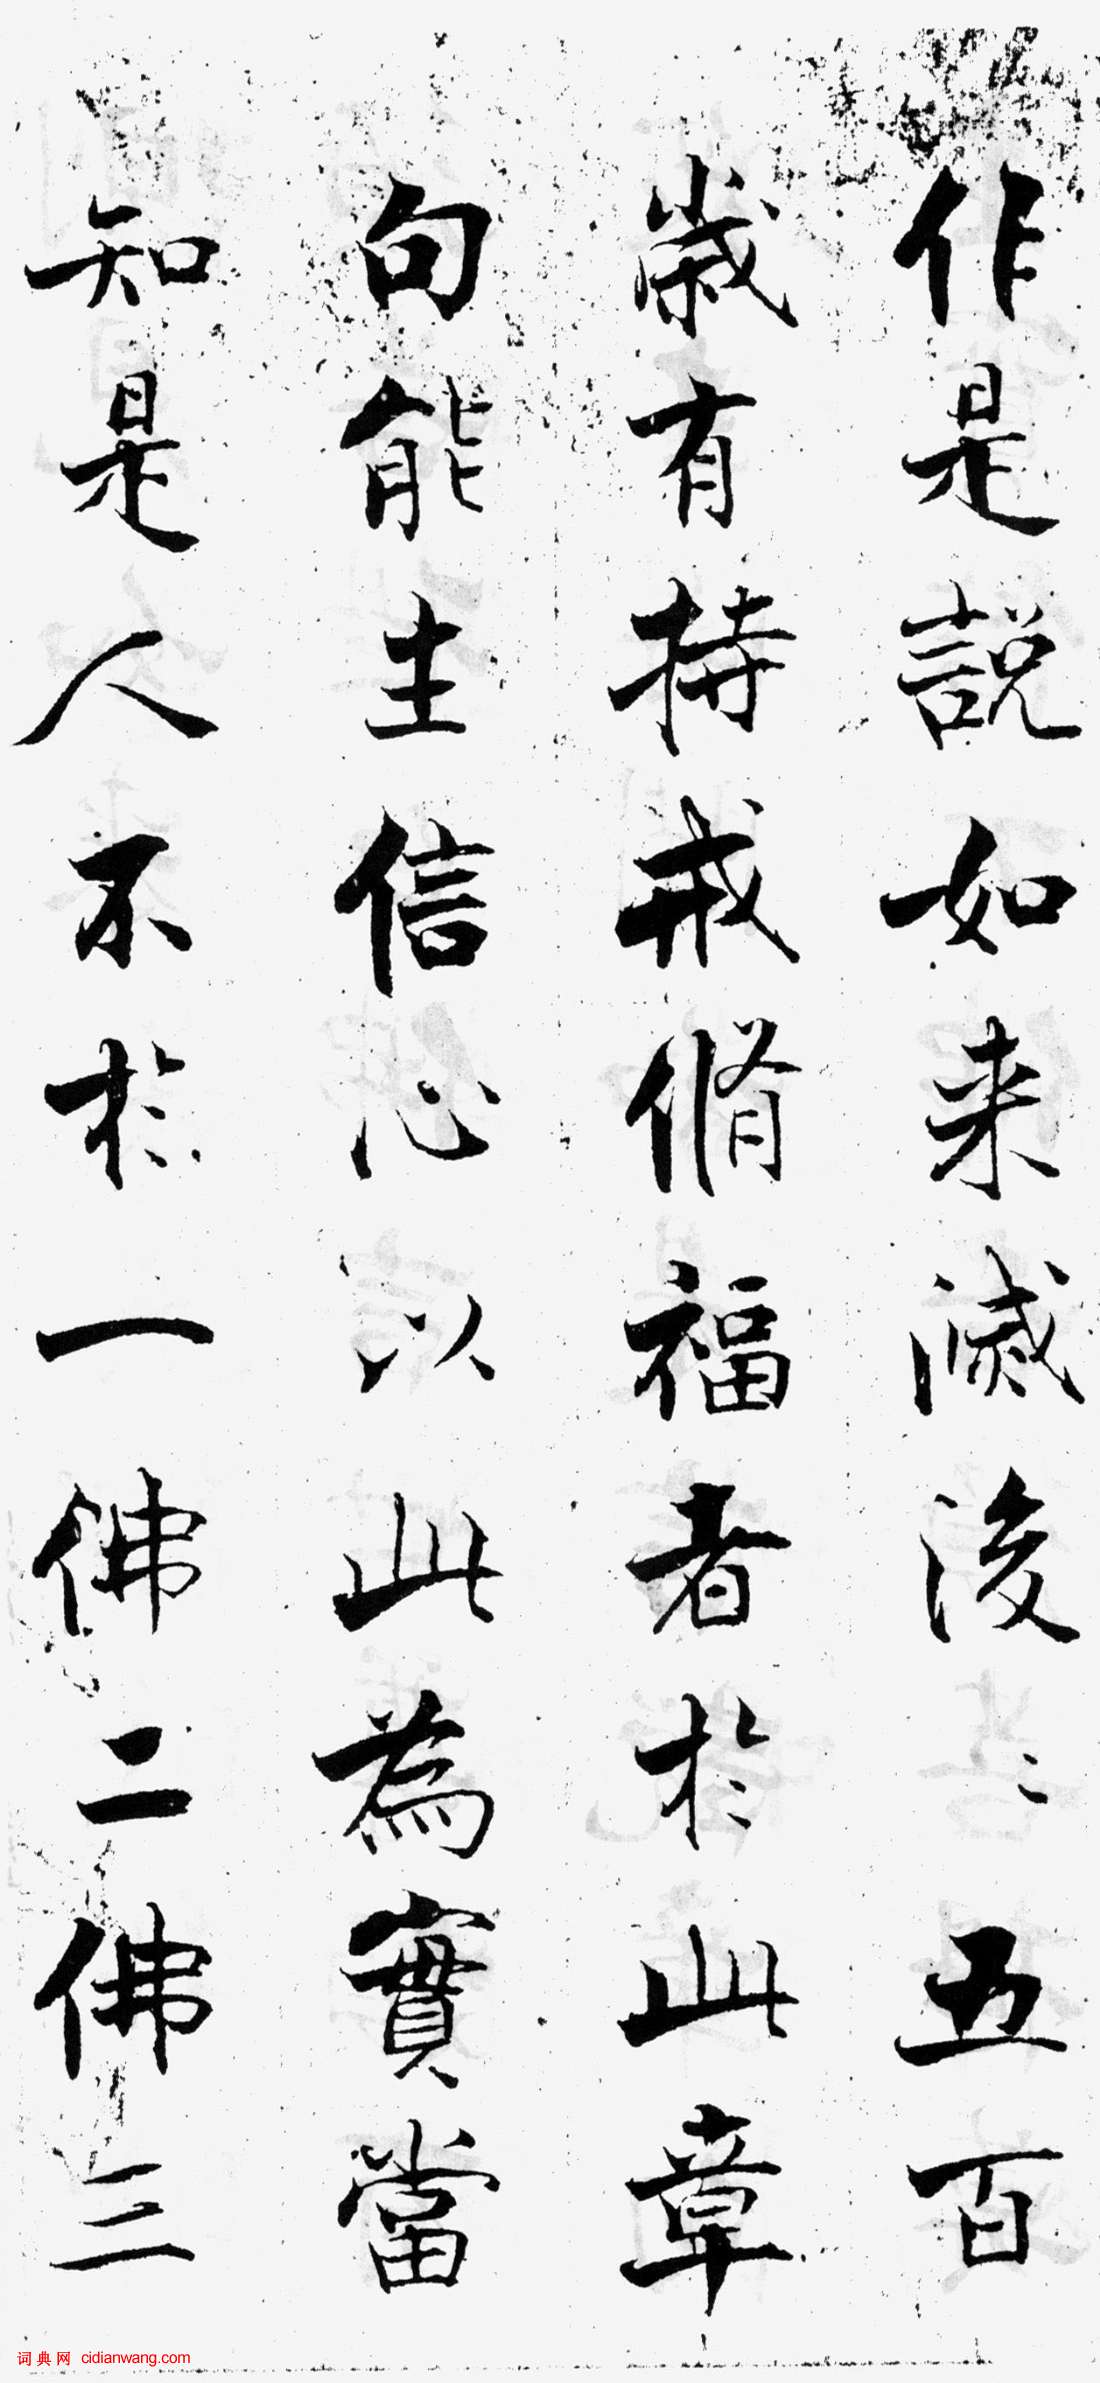 作是說如来滅後〻五百
歲有持戒脩福者於此章
句能生信心以此為實當
知是人不於一佛二佛三
词典网 cidianwang.com